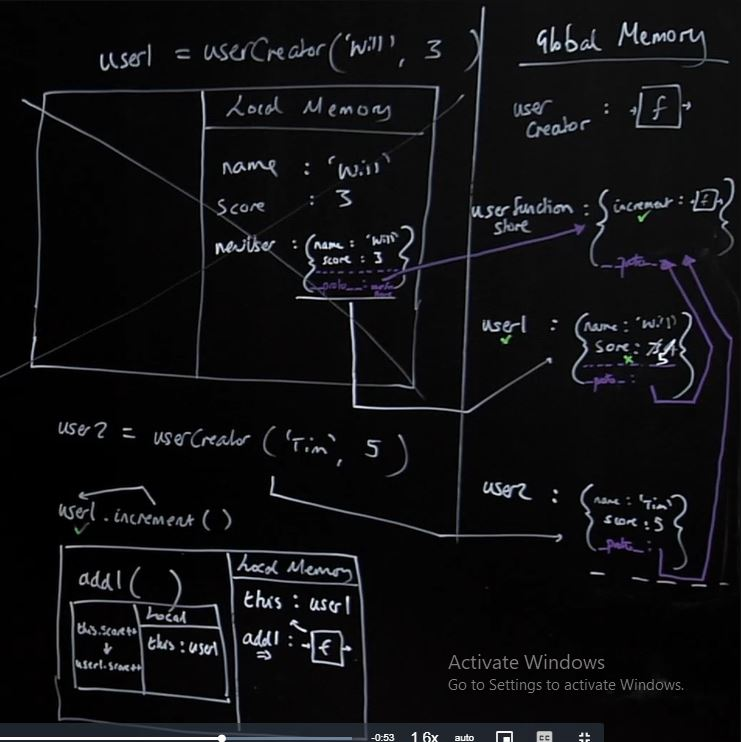 user1 = userCreator('Will', 3)
Local Memory
name : 'Will'
score : 3
newUser : {name : 'Will'
score : 3
__proto__ :
user2 = userCreator('Tim', 5)
user1.increment()
add1( )
this.score++
user1.score++
Local
this : user1
Local Memory
this : user1
add1 : f
Global Memory
user
Creator : f
userfunction : {increment : f}
store
__proto__
user1 : {name : 'Will'
Sore : 5
__proto__ :
user2 : {name : 'Tim'
score : 5
__proto__ :
Activate Windows
Go to Settings to activate Windows.
-0:53 1.6x auto CC